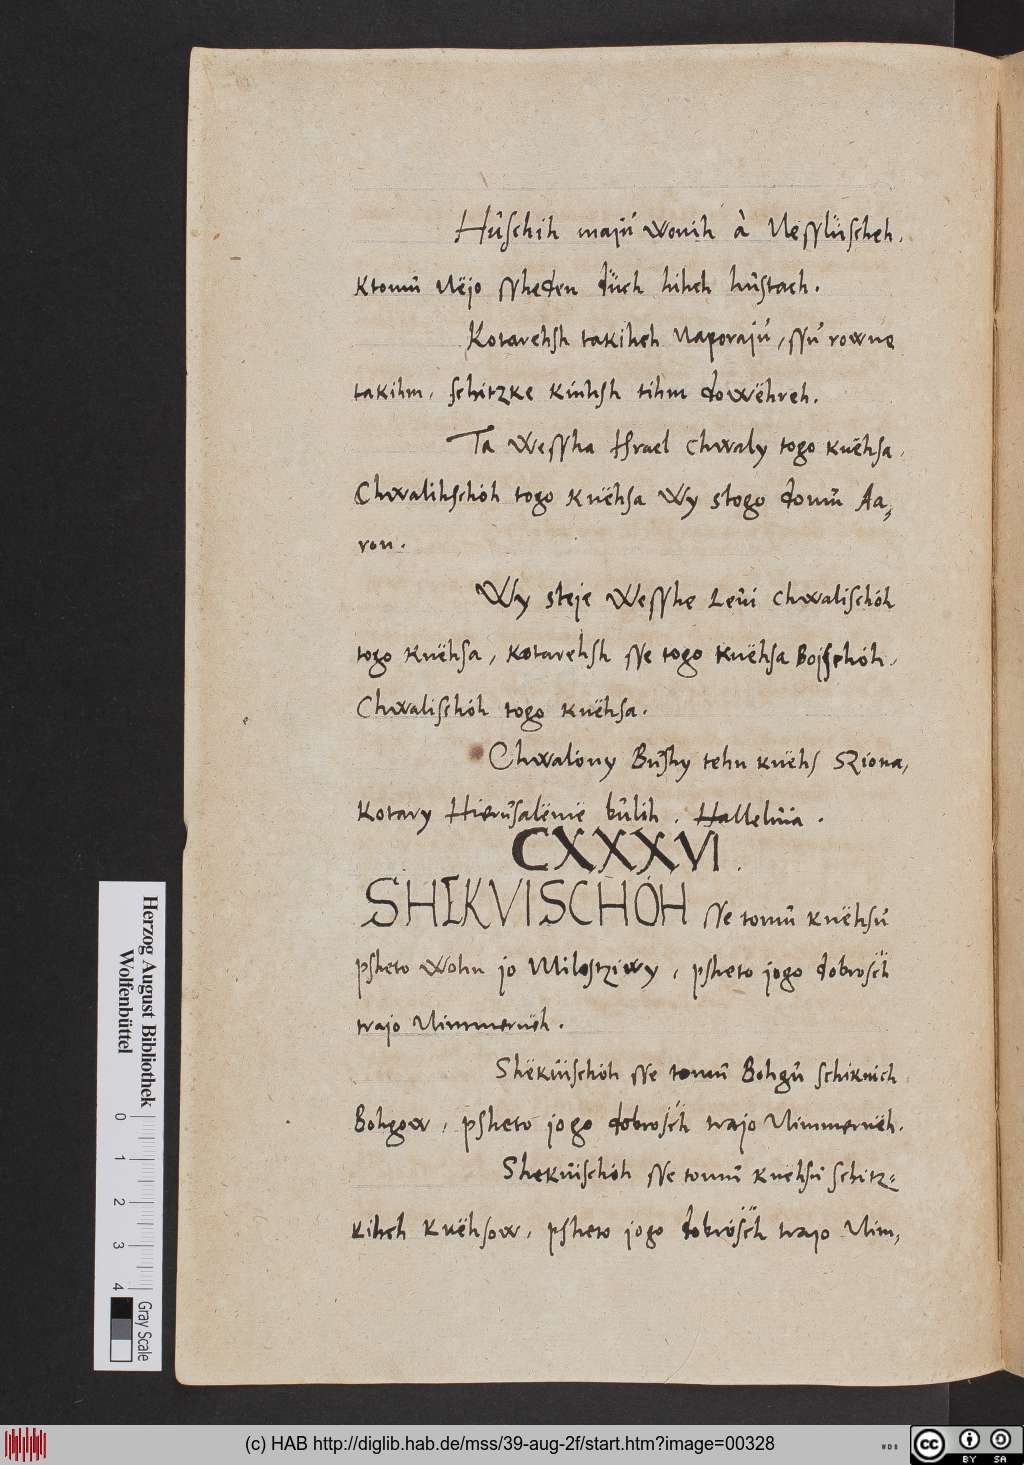 Hûschih majú wonih à Nessluscheh,
Ktomû Nëjo ssheden duch hihch hûstach.
Kotarehsh takihch Naporajú, ssú rowne
takihm, schitzke kiihsh tihm dowëhreh.
Ta Wessha Israel chwaly togo knëhsa,
Chwalihschóh togo Knëhsa Wy stogo domû Aa,
ron.
Wy steje Wesshe Levi chwalischóh
togo knëhsa, kotarehsh sse togo knëhsa Bojschóh,
Chwalischóh togo knëhsa.
Chwalóny Bûshy tehn knëhs SZiona,
Kotary Hierûsalëmë bûlih. Halleluia.
CXXXVI.
SHIKVISCHÓH sse tomû knëhsú
psheto Wohn jo Milostziwy, psheto jogo dobrosch
trajo Nimmernëh.
Shëkûischóh sse tomû Bohgû schiknich
Bohgow, psheto jogo dobrosch trajo Nimmernëh.
Shekûischóh sse tomû knëhsû schitz=
kihch Knëhsow, psheto jogo dobrósch trajo Nim,
Herzog August Bibliothek
Wolfenbüttel
0 1 2 3 4
Gray Scale
(c) HAB http://diglib.hab.de/mss/39-aug-2f/start.htm?image=00328
WDB
cc BY SA